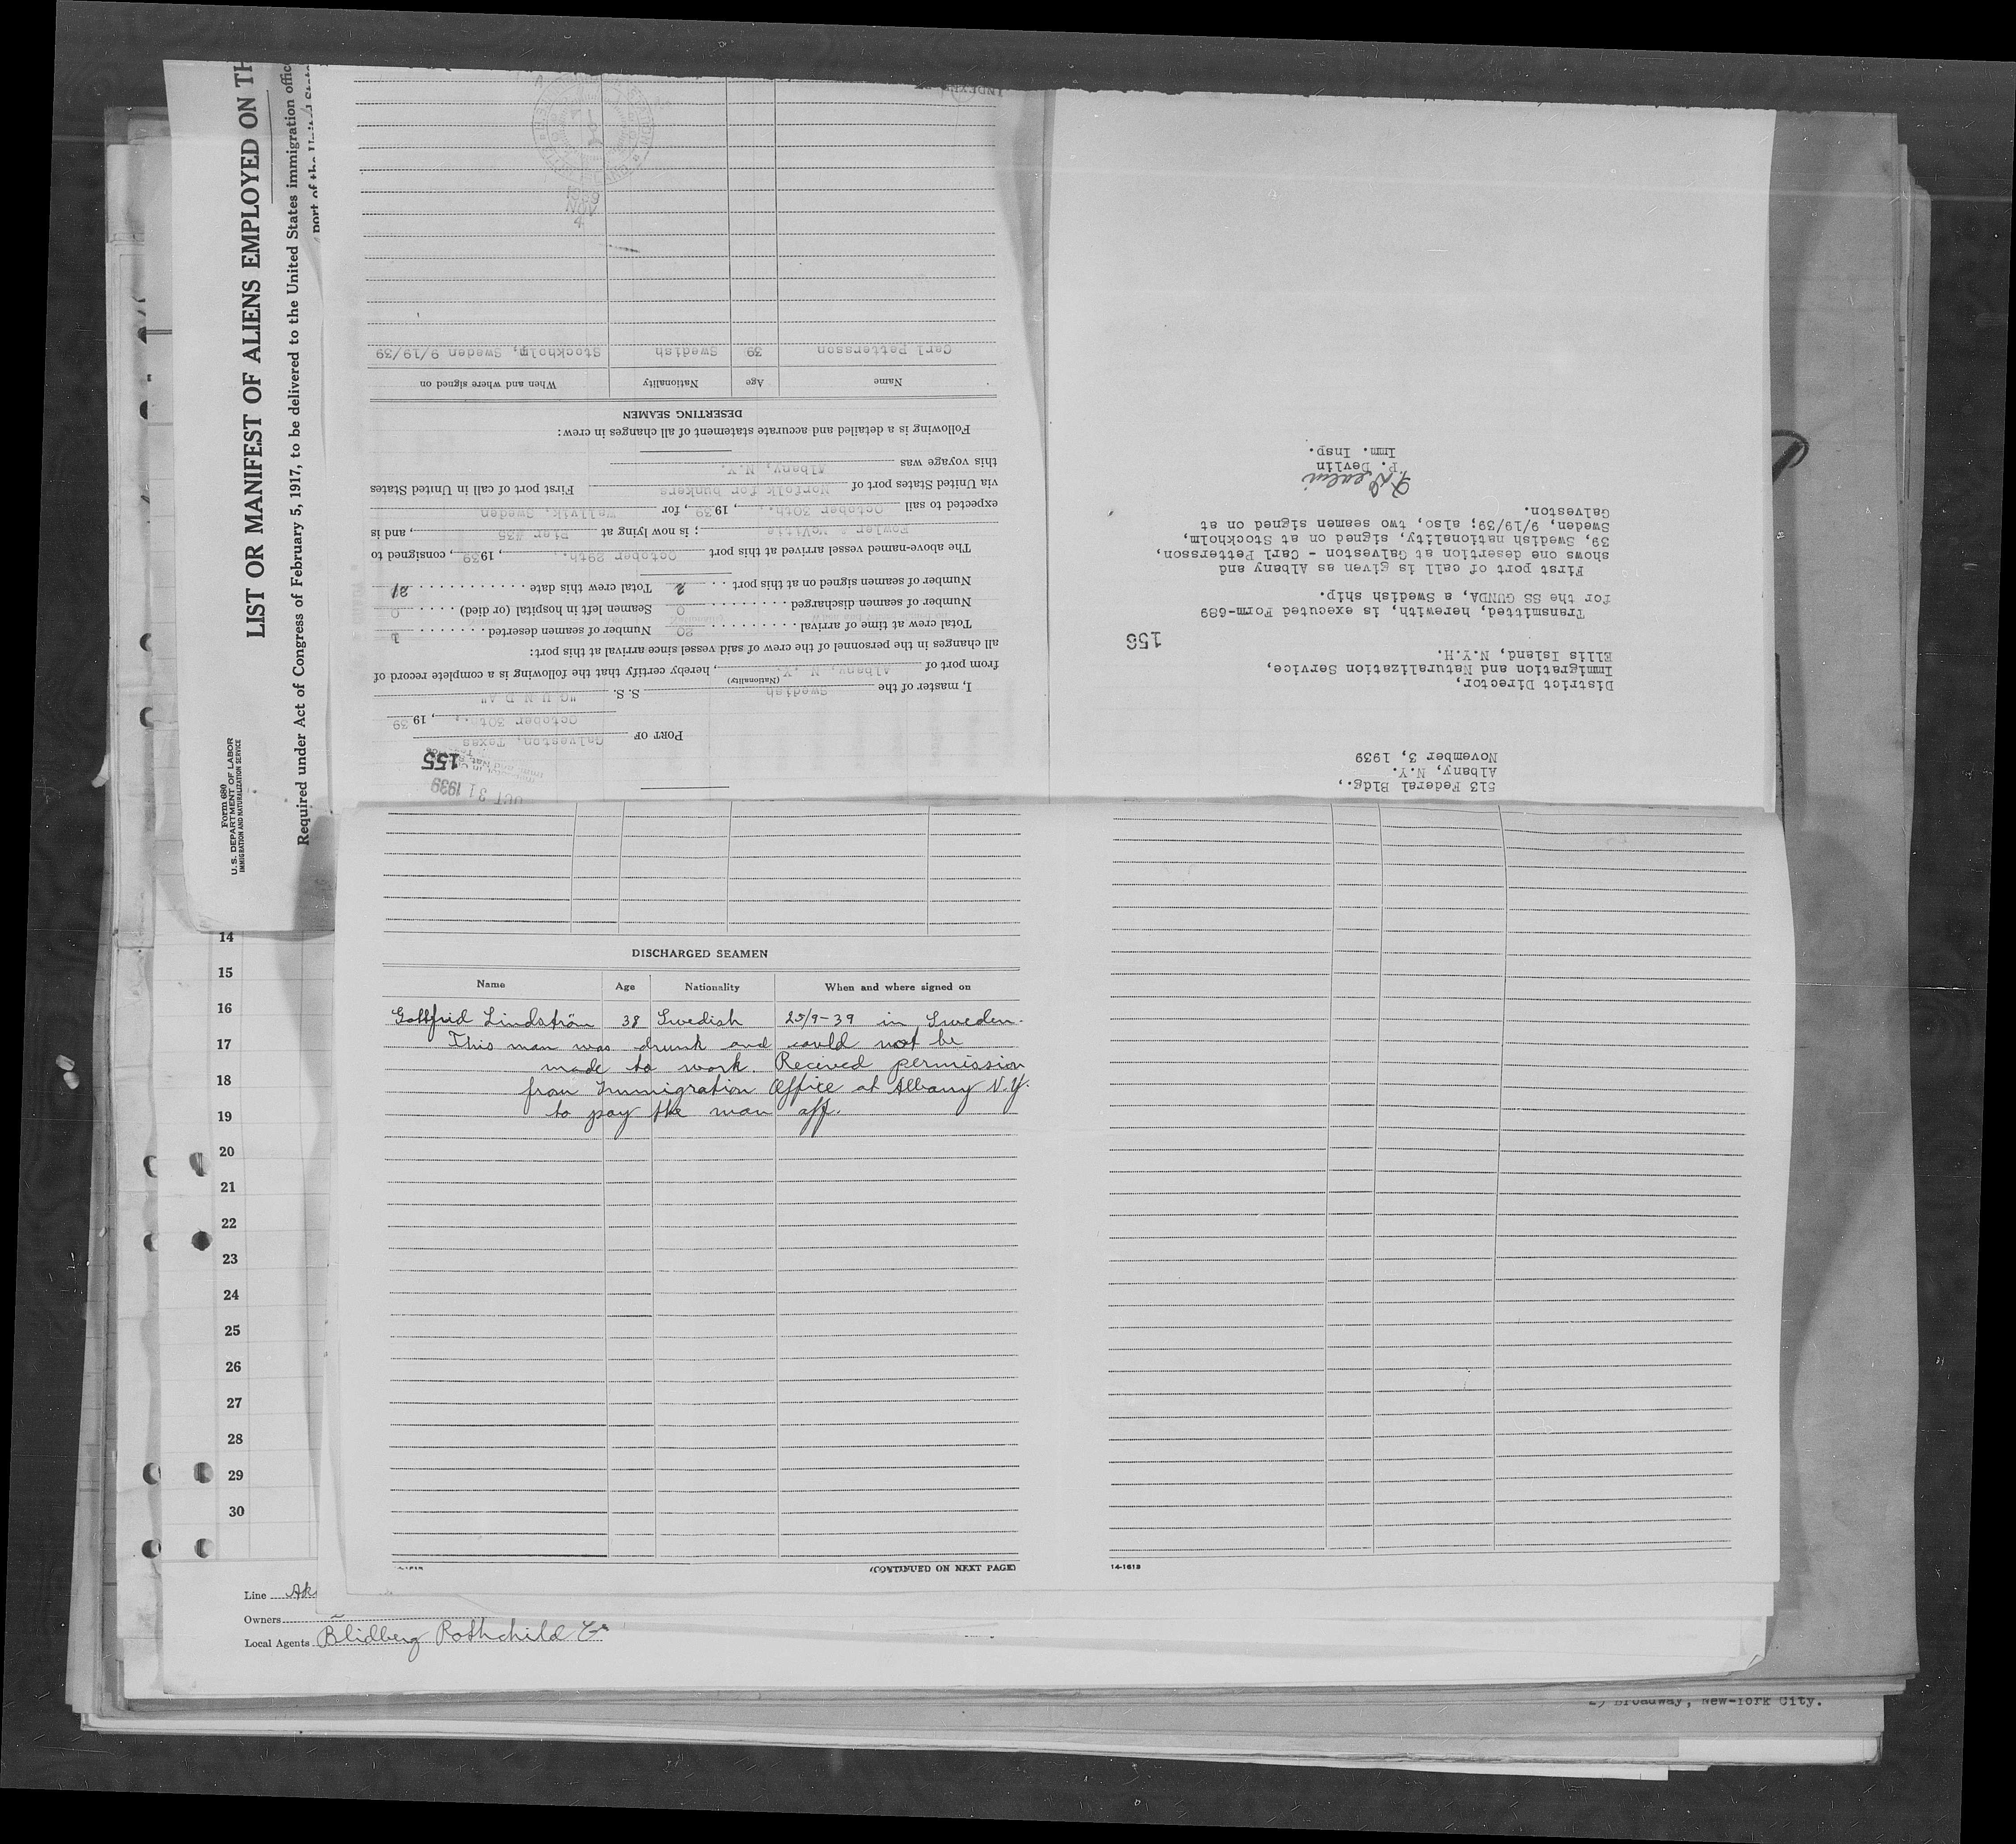 Form 680
U. S. DEPARTMENT OF LABOR
IMMIGRATION AND NATURALIZATION SERVICE
LIST OR MANIFEST OF ALIENS EMPLOYED ON TH
Required under Act of Congress of February 5, 1917, to be delivered to the United States immigration offic
port of the United State
OCT 31 1939
155
PORT OF Galveston, Texas
October 30th., 19 39
I, master of the Swedish S. S. "G U N D A"
(Nationality)
from port of Albany, N.Y., hereby certify that the following is a complete record of
all changes in the personnel of the crew of said vessel since arrival at this port:
Total crew at time of arrival 20 Number of seamen deserted 1
Number of seamen discharged 0 Seamen left in hospital (or died) 0
Number of seamen signed on at this port 2 Total crew this date 21
The above-named vessel arrived at this port October 29th., 19 39, consigned to
Fowler & McVitie; is now lying at Pier #35, and is
expected to sail October 30th., 19 39, for Wallvik, Sweden
via United States port of Norfolk for bunkers First port of call in United States
this voyage was Albany, N.Y.
Following is a detailed and accurate statement of all changes in crew:
DESERTING SEAMEN
Name Age Nationality When and where signed on
Carl Pettersson 39 Swedish Stockholm, Sweden 9/19/39
1939
NOV
4
513 Federal Bldg.,
Albany, N.Y.
November 3, 1939
District Director,
Immigration and Naturalization Service,
Ellis Island, N.Y.H.
156
Transmitted, herewith, is executed Form-689
for the SS GUNDA, a Swedish ship.
First port of call is given as Albany and
shows one desertion at Galveston - Carl Pettersson,
39, Swedish nationality, signed on at Stockholm,
Sweden, 9/19/39; also, two seamen signed on at
Galveston.
P. Devlin
P. Devlin
Imm. Insp.
DISCHARGED SEAMEN
Name Age Nationality When and where signed on
Gottfrid Lindström 38 Swedish 25/9-39 in Sweden.
This man was drunk and could not be
made to work. Received permission
from Immigration Office at Albany N.Y.
to pay the man off.
(CONTINUED ON NEXT PAGE)
14-1613
14
15
16
17
18
19
20
21
22
23
24
25
26
27
28
29
30
Line
Owners
Local Agents Blidberg Rothchild Co
Broadway, New-York City.